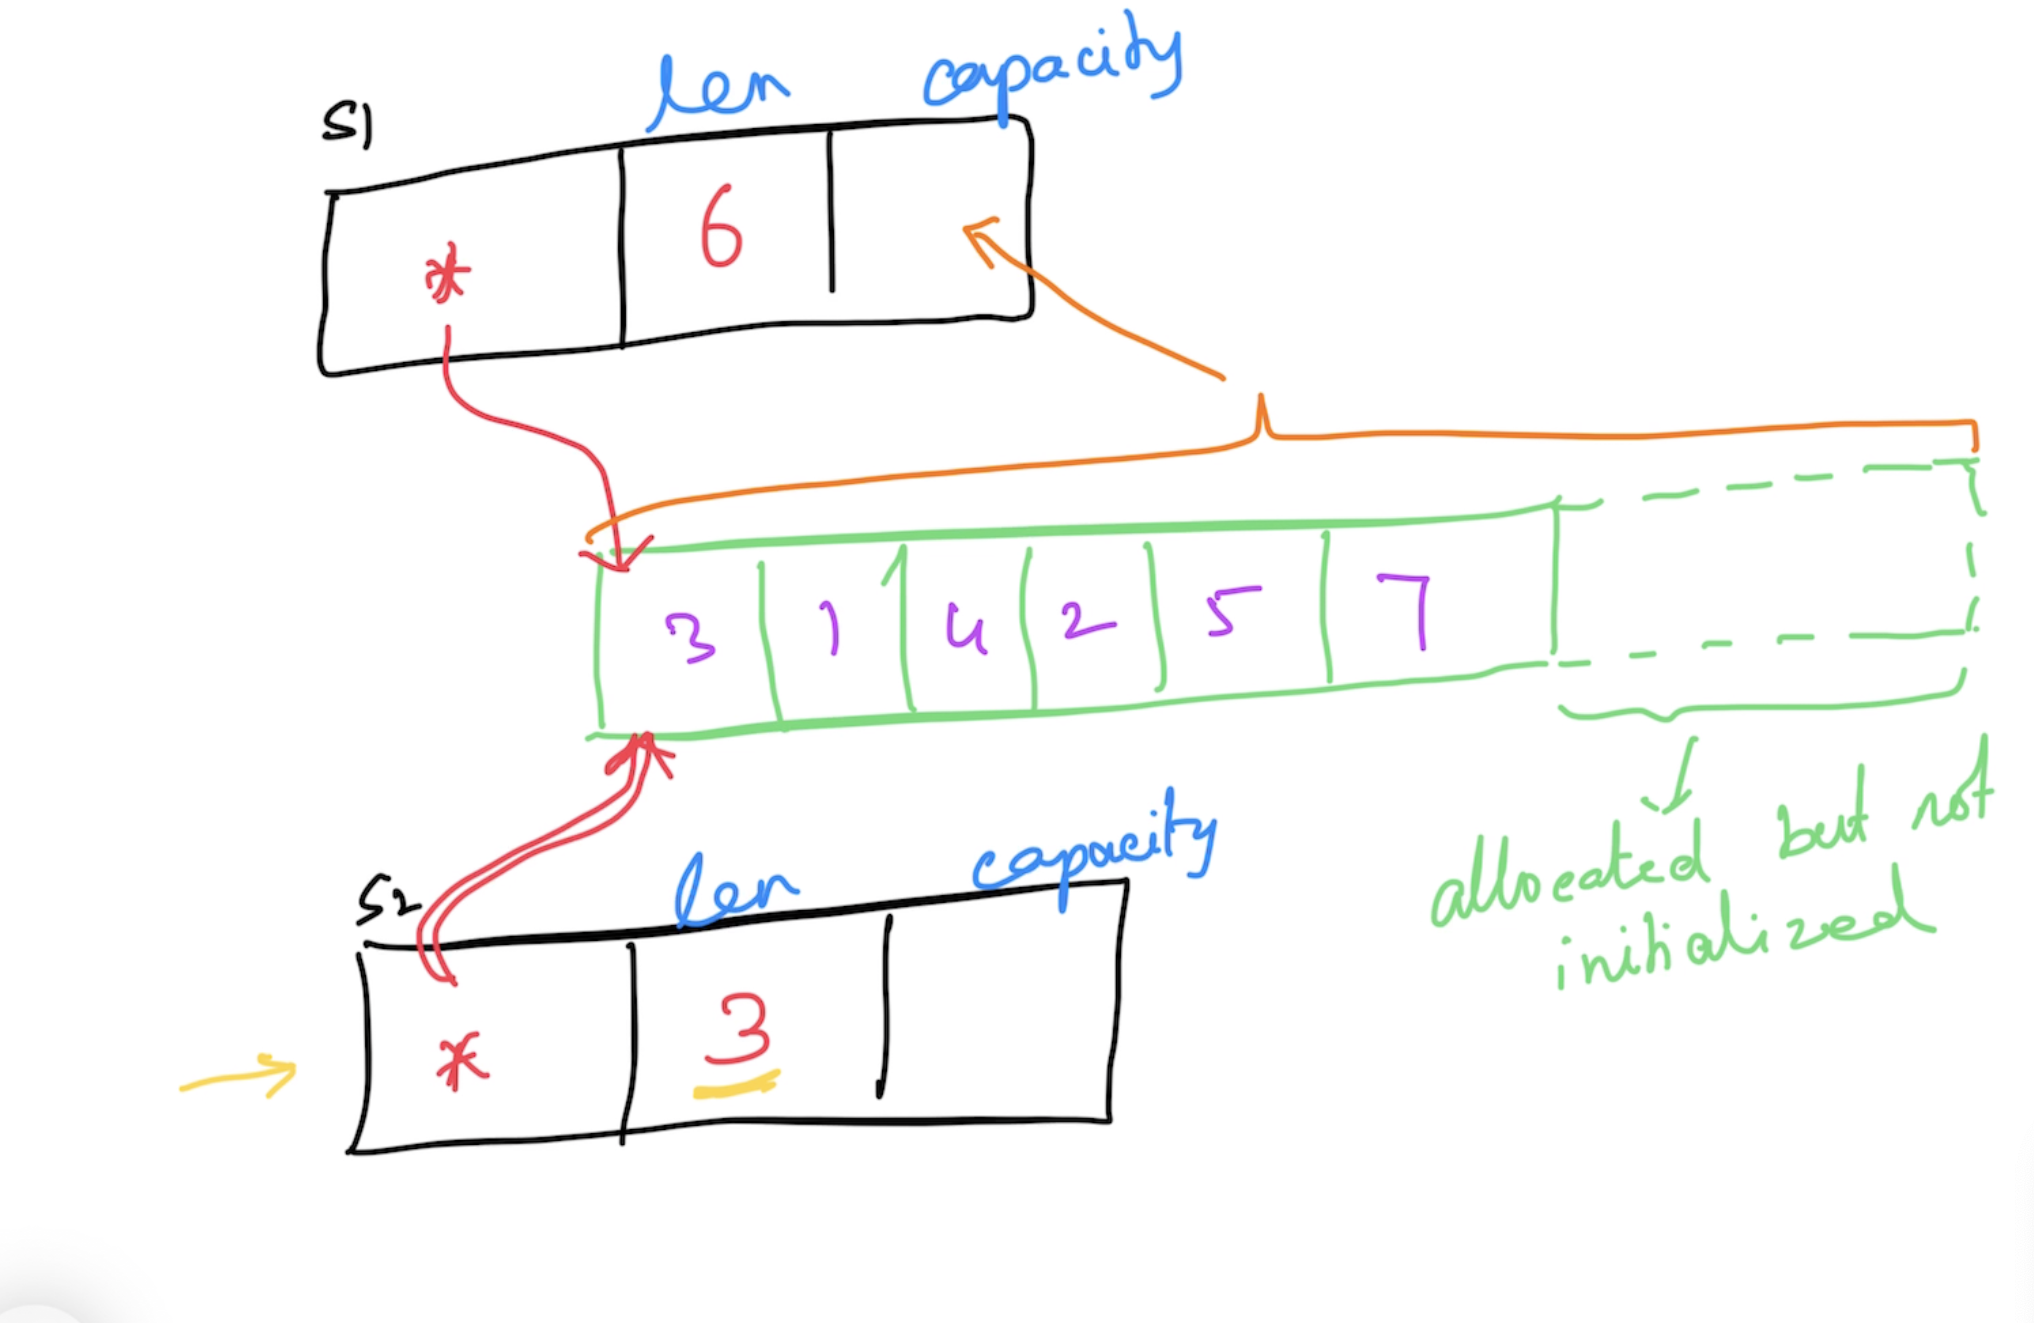 S1 len capacity
* 6
3 1 4 2 5 7
allocated but not
initialized
S2 len capacity
* 3